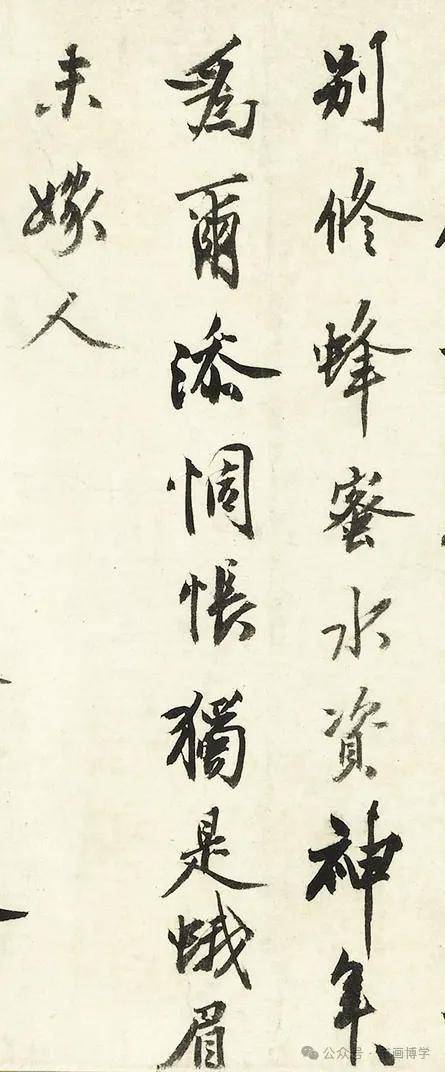 别修蜂蜜水資神年〻
爲爾添惆悵獨是蛾眉
未嫁人
公众号 · 画博学